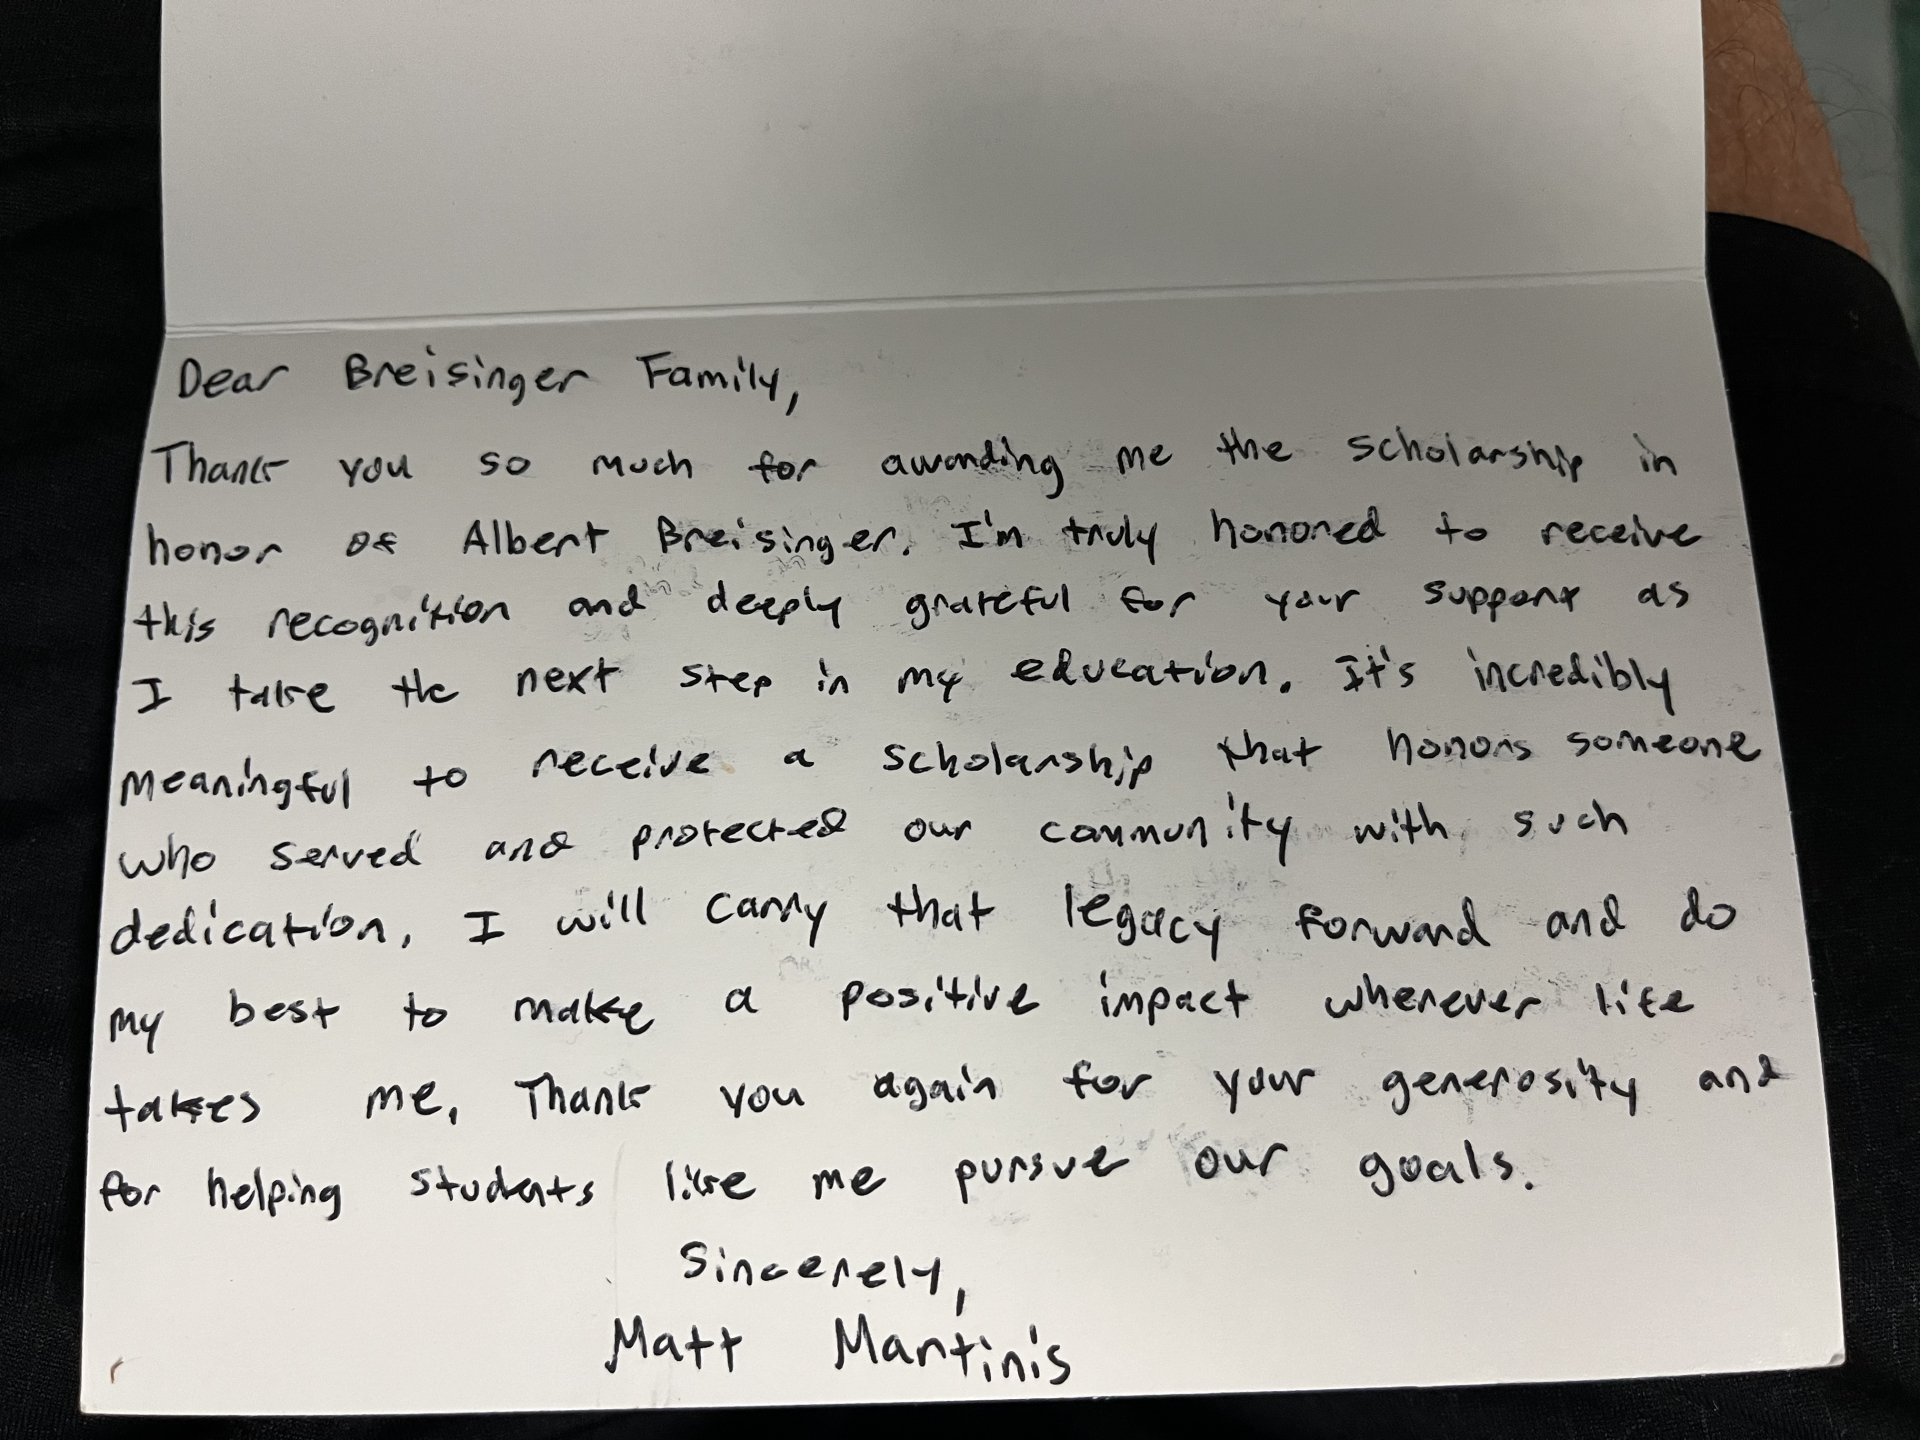 Dear Breisinger Family,
Thank you so much for awarding me the scholarship in
honor of Albert Breisinger. I'm truly honored to receive
this recognition and deeply grateful for your support as
I take the next step in my education. It's incredibly
meaningful to receive a scholarship that honors someone
who served and protected our community with such
dedication. I will carry that legacy forward and do
my best to make a positive impact whenever life
takes me. Thank you again for your generosity and
for helping students like me pursue our goals.
Sincerely,
Matt Martinis